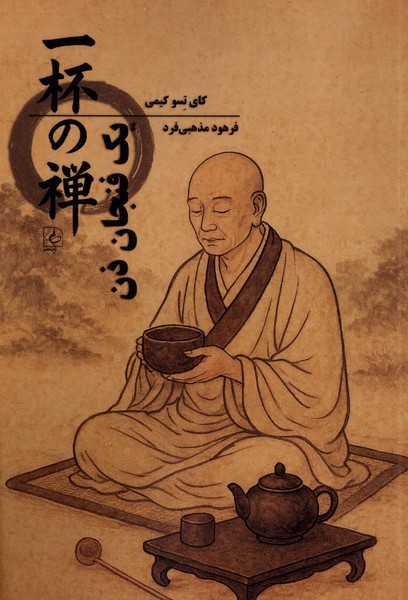 一杯の禅
یک فنجان ذن
کای تسو کیمی
فرهود مذهبی‌فرد